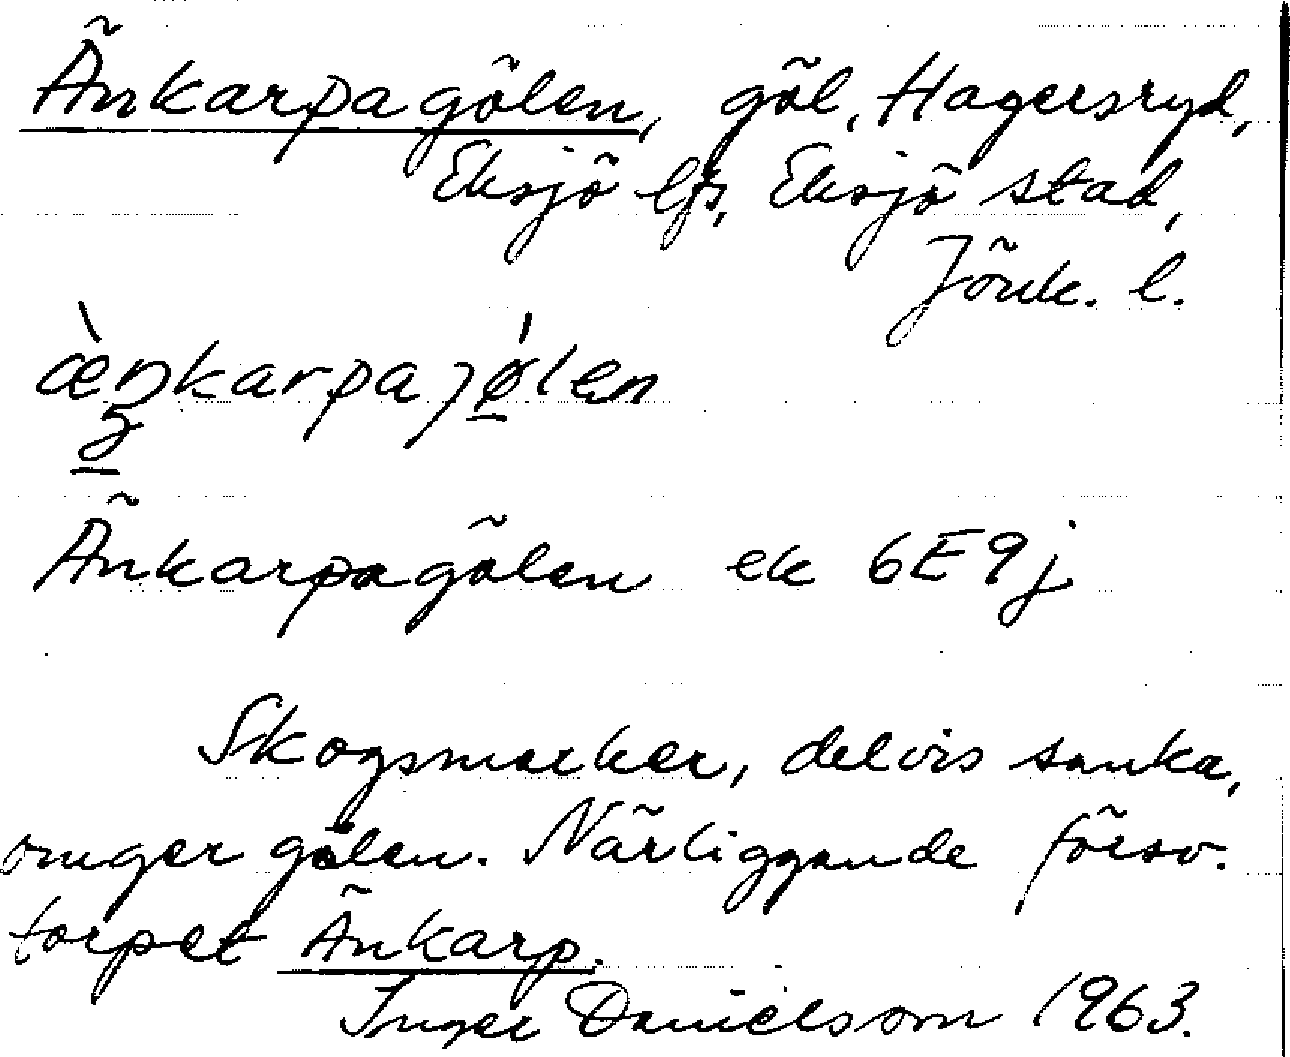 Änkarpagölen, göl, Hagersryd,
Eksjö lfs, Eksjö stad,
Jönk. l.
æ̀ŋkarpajǿlen
Änkarpagölen ek 6E9j
Skogsmarker, delvis sanka,
omger gölen. Närliggande försv.
torpet Änkarp.
Inger Danielsson 1963.